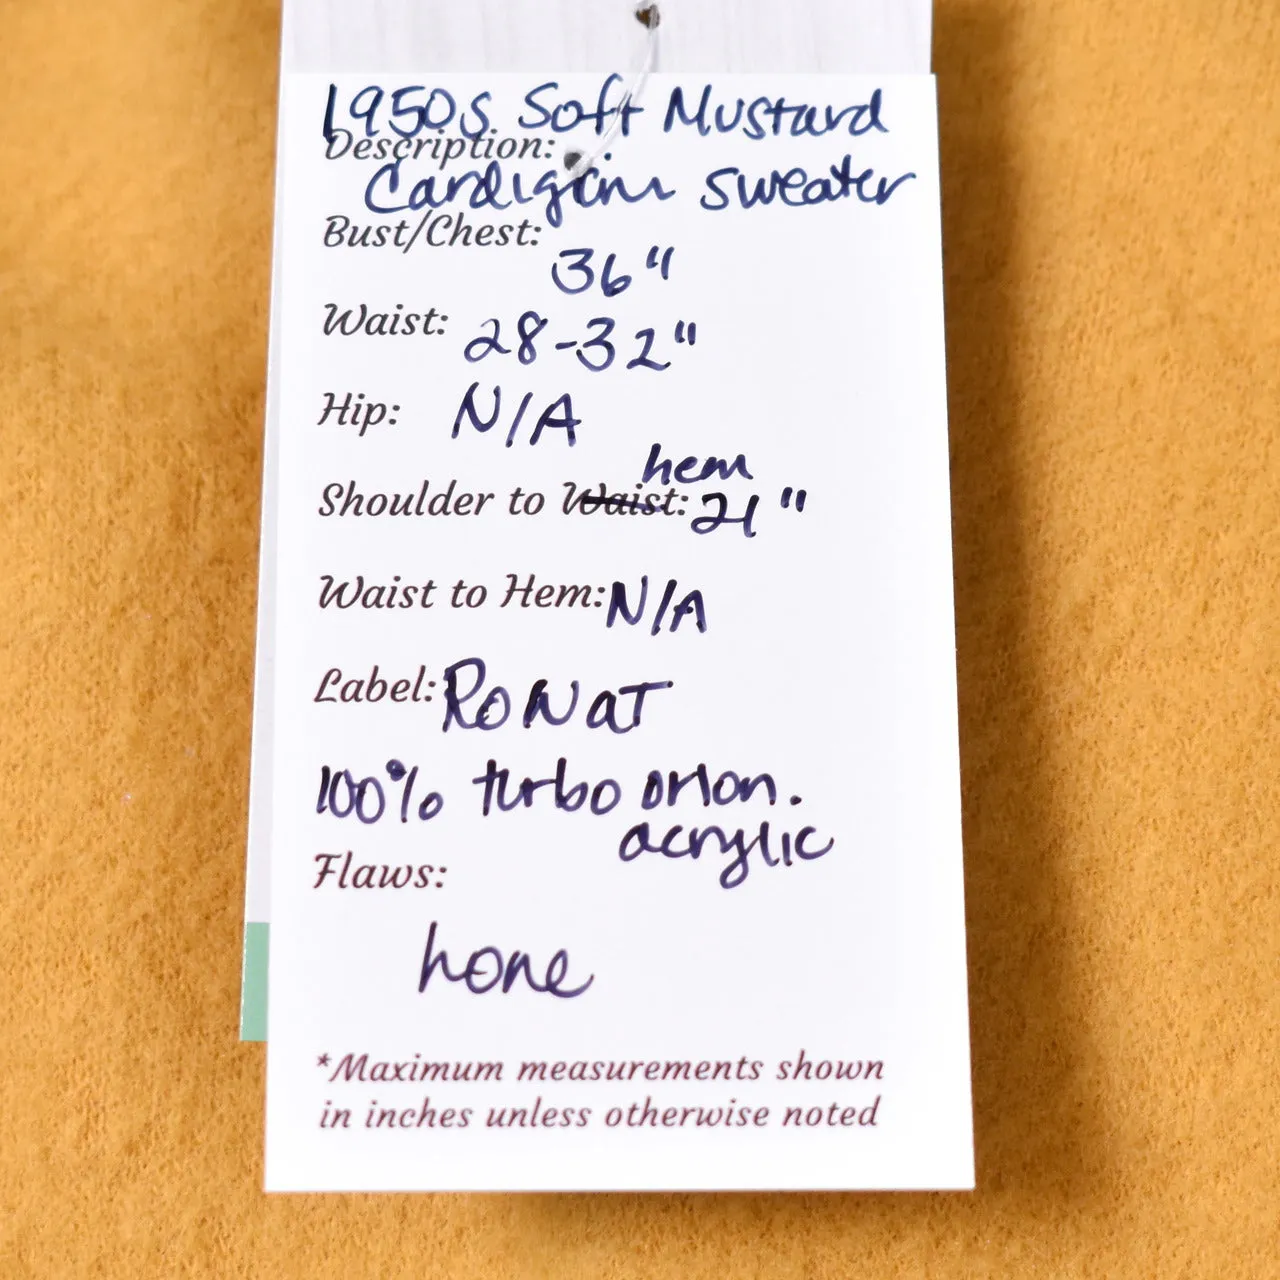 1950s Soft Mustard
Description:
Cardigan sweater
Bust/Chest:
36"
Waist: 28-32"
Hip: N/A
hem
Shoulder to Waist: 21"
Waist to Hem: N/A
Label: RoNaT
100% turbo orlon.
acrylic
Flaws:
none
*Maximum measurements shown
in inches unless otherwise noted